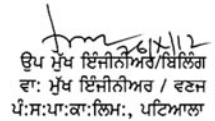 26/X/12
ਉਪ ਮੁੱਖ ਇੰਜੀਨੀਅਰ/ਬਿਲਿੰਗ
ਵਾ: ਮੁੱਖ ਇੰਜੀਨੀਅਰ / ਵਣਜ
ਪੰ:ਸ:ਪਾ:ਕਾ:ਲਿਮ:, ਪਟਿਆਲਾ